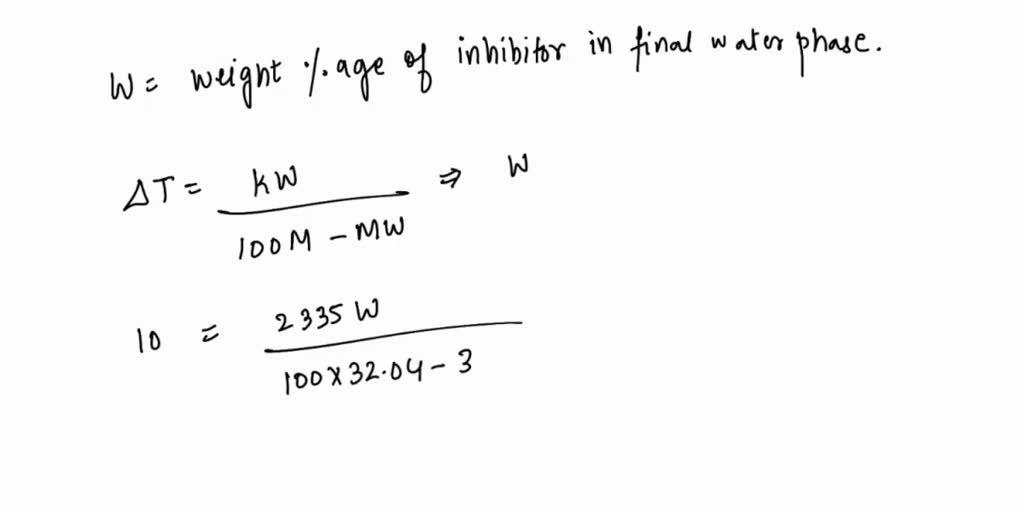 W = weight %age of inhibitor in final water phase.
ΔT = KW / 100M - MW ⇒ W
10 = 2335 W / 100 x 32.04 - 3